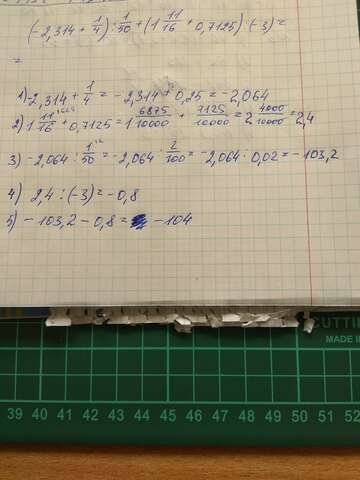 (-2,314 + 1/4) : 1/50 + (1 11/16 + 0,7125) : (-3) =
=
1) -2,314 + 1/4 = -2,314 + 0,25 = -2,064
2) 1 11/16 + 0,7125 = 1 6875/10000 + 7125/10000 = 2 4000/10000 = 2,4
3) -2,064 : 1/50 = -2,064 : 2/100 = -2,064 : 0,02 = -103,2
4) 2,4 : (-3) = -0,8
5) -103,2 - 0,8 = -104
CUTTING
MADE IN
39 40 41 42 43 44 45 46 47 48 49 50 51 52 53